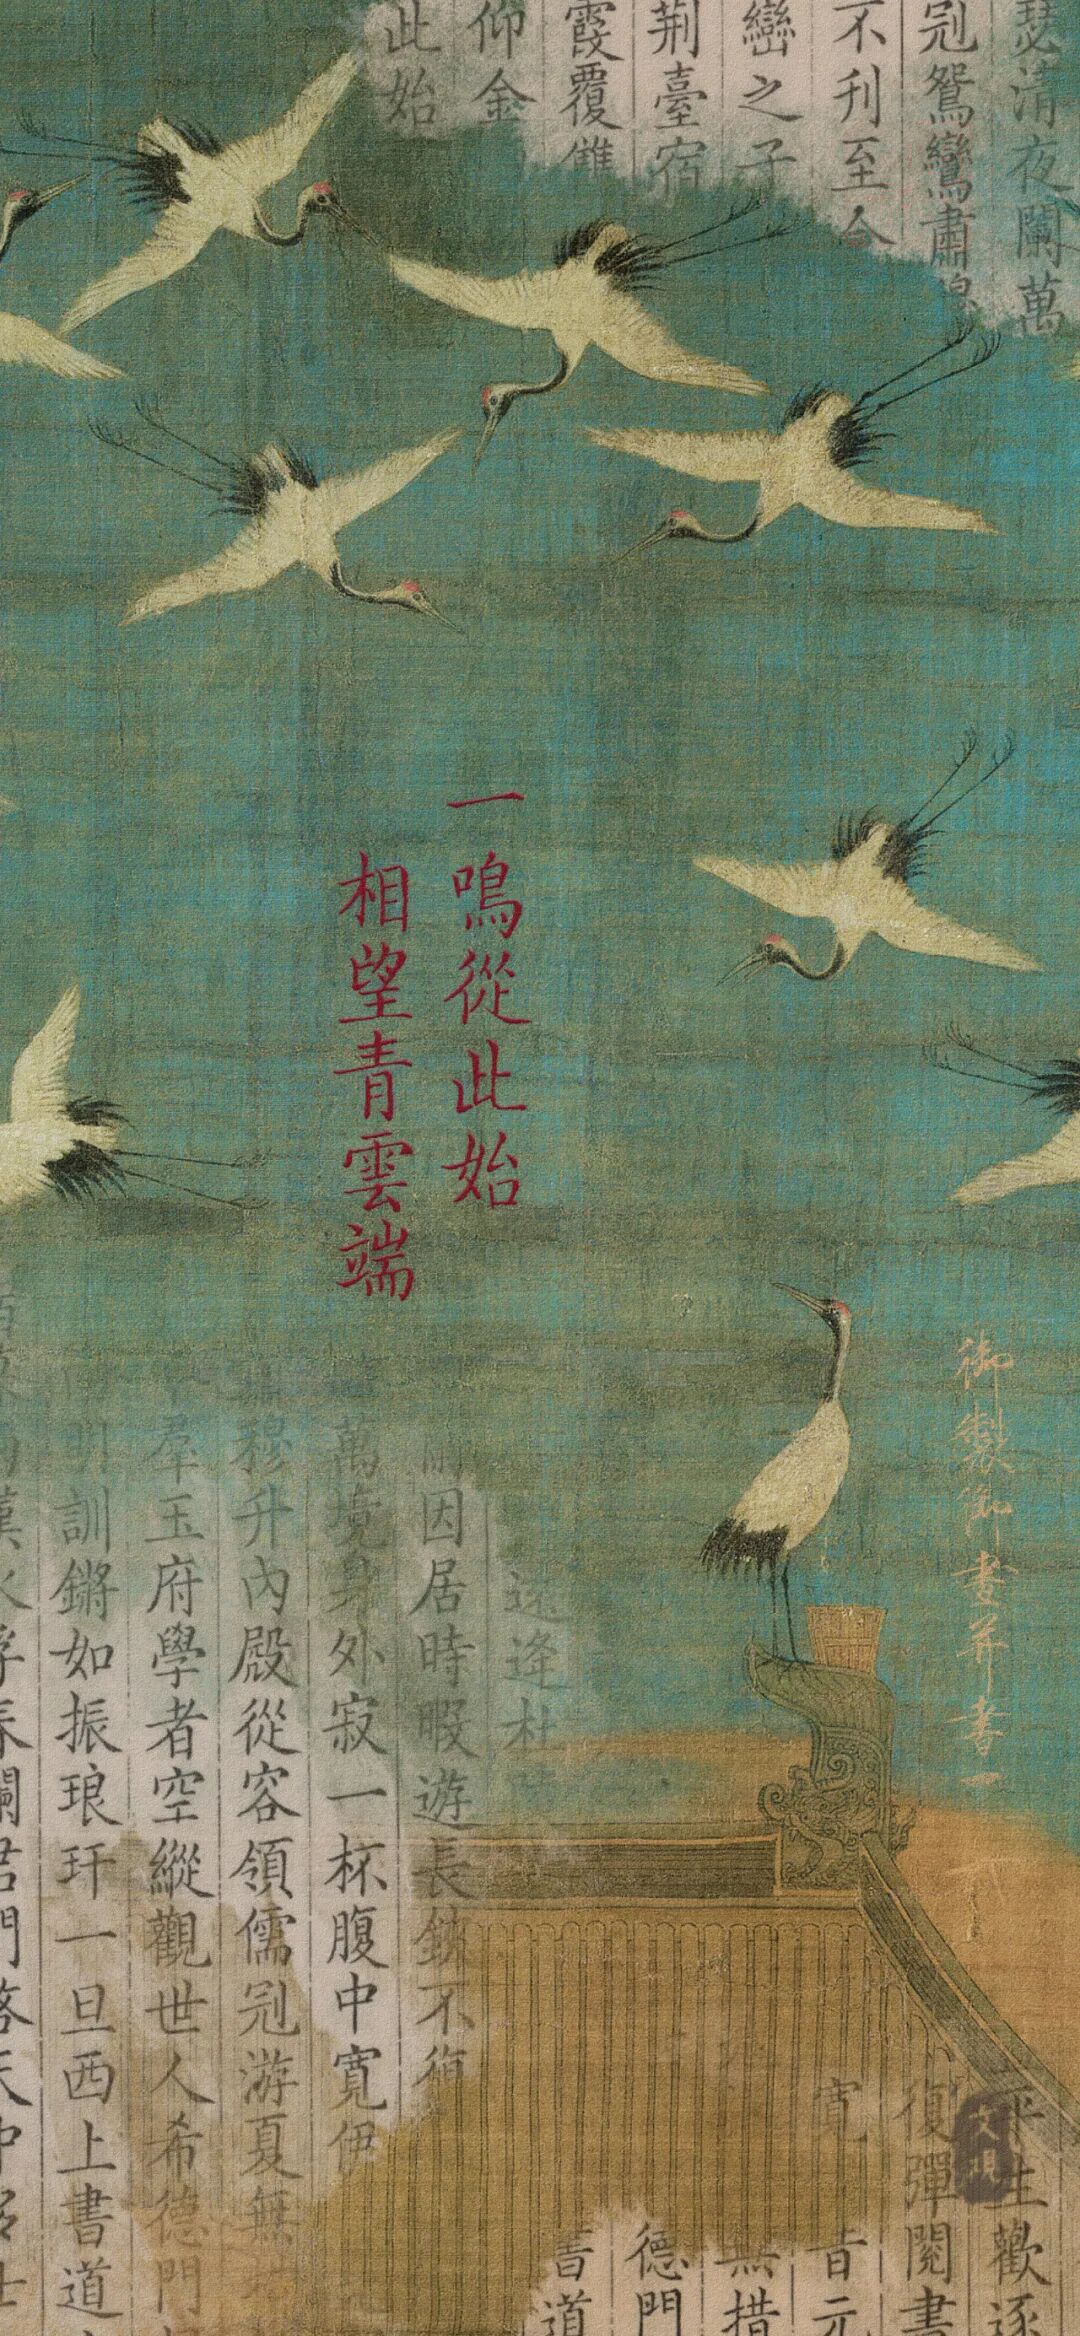 瑟清夜闌萬
冠鴛鸞肅
不刊至今
巒之子
荊臺宿
霞覆
仰金
此始
一鳴從此始
相望青雲端
御製御畫并書
遠逢杜
因居時暇遊長鋏不復
萬境身外寂一杯腹中寬伊
穆升內殿從容領儒冠游夏無
羣玉府學者空縱觀世人希德門
明訓鏘如振琅玕一旦西上書道
漢水浮春瀾君門啓天中
平生歡逐
復彈閱書
寬 昔元
無措
德門
書道